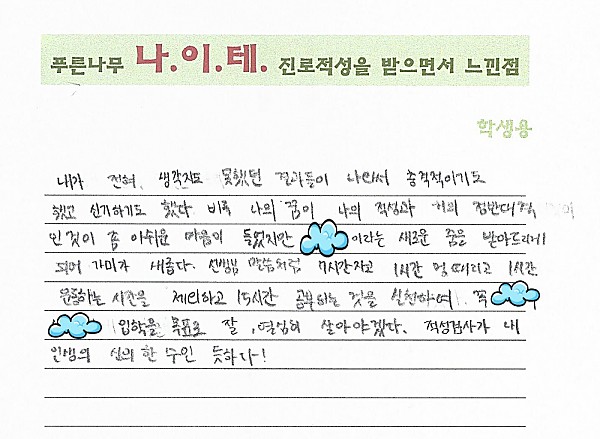 푸른나무 나.이.테. 진로적성을 받으면서 느낀점
학생용
내가 전혀 생각지도 못했던 결과들이 나와서 충격적이기도
했고 신기하기도 했다. 비록 나의 꿈이 나의 적성과 거의 정반대
인것이 좀 아쉬운 마음이 들었지만 이라는 새로운 꿈을 받아드리게
되어 가미가 새롭다. 선생님 말씀처럼 7시간자고 1시간 멍때리고 1시간
운동하는 시간을 제외하고 15시간 공부하는 것을 실천하여 꼭
입학을 목표로 잘, 열심히 살아야겠다. 적성검사가 내
인생의 신의 한 수인 듯하다!